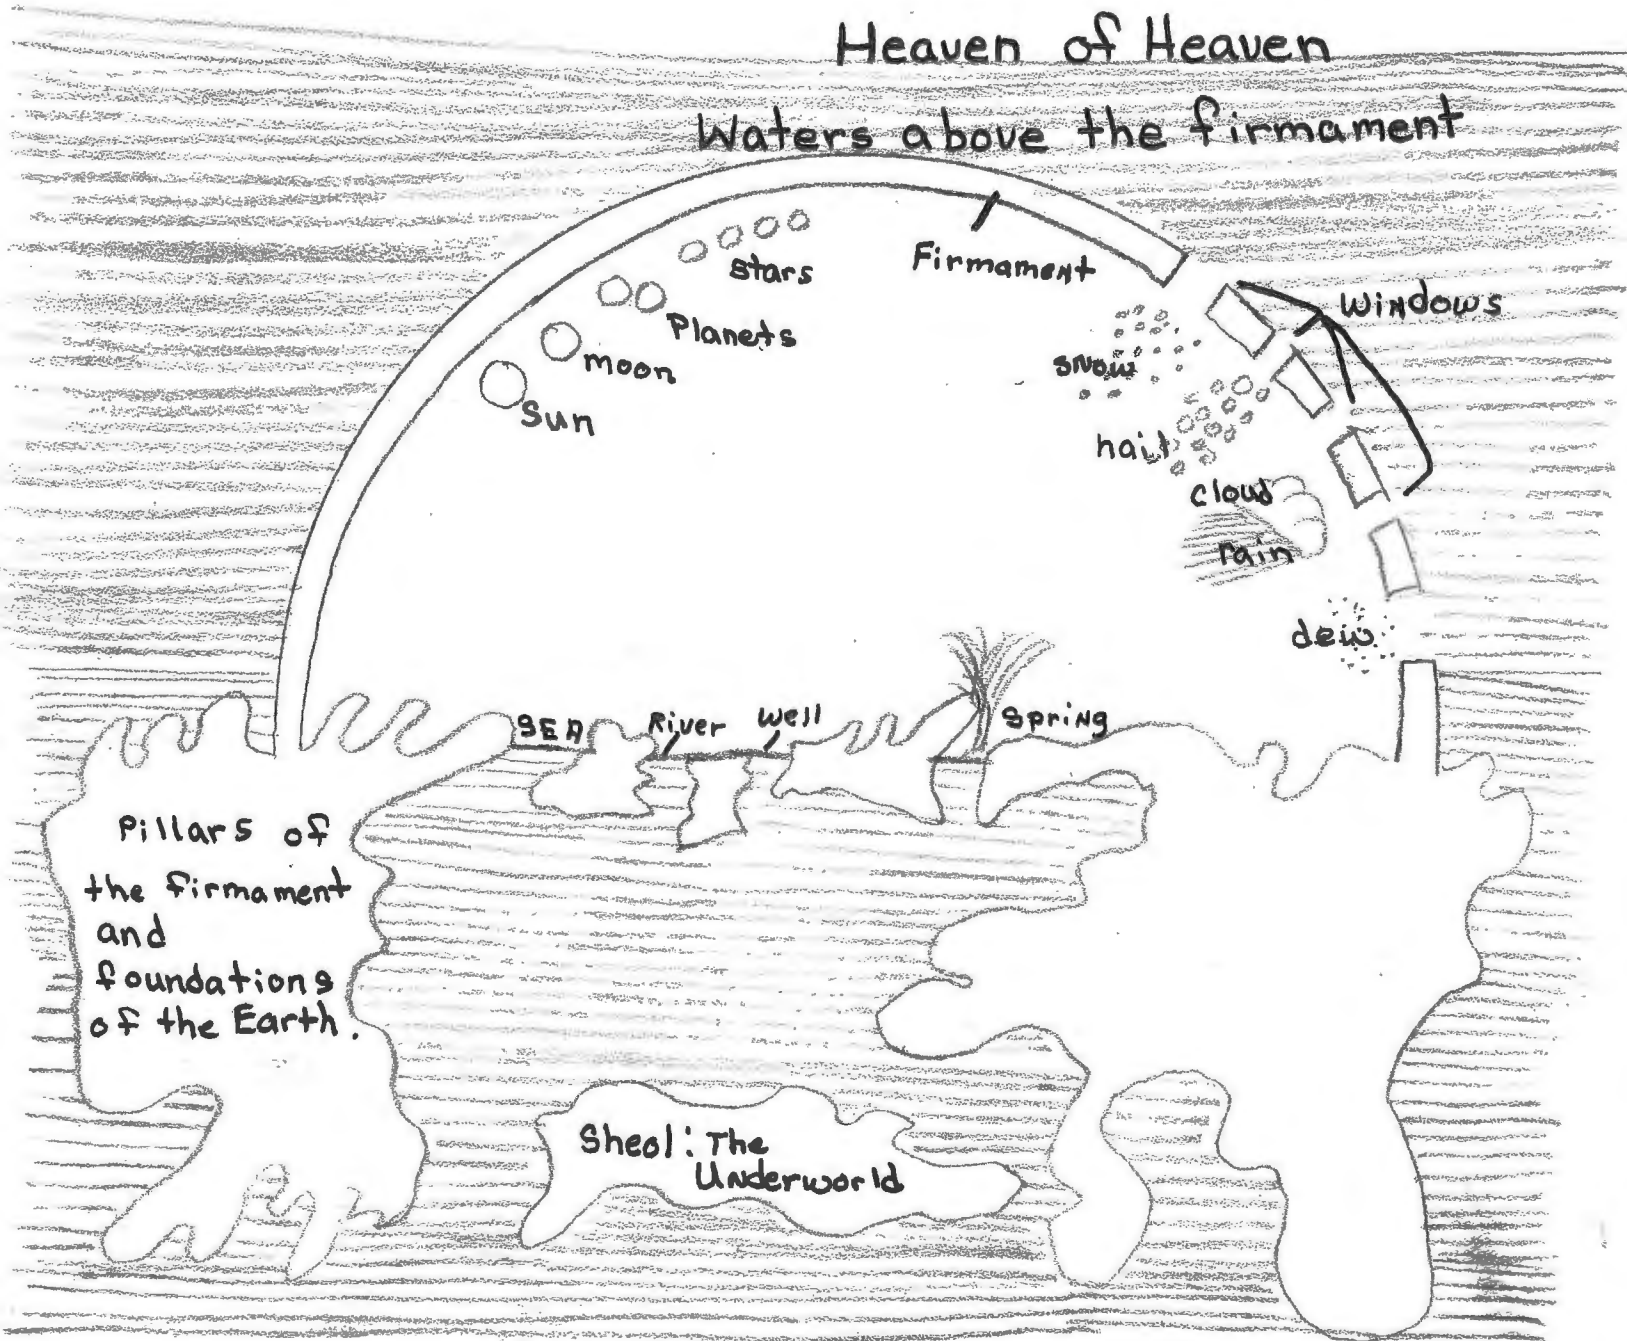 Heaven of Heaven
Waters above the firmament
Firmament
stars
Windows
Planets
snow
moon
Sun
hail
cloud
rain
dew
SEA
River
Well
Spring
Pillars of
the firmament
and
foundations
of the Earth.
Sheol: The
Underworld